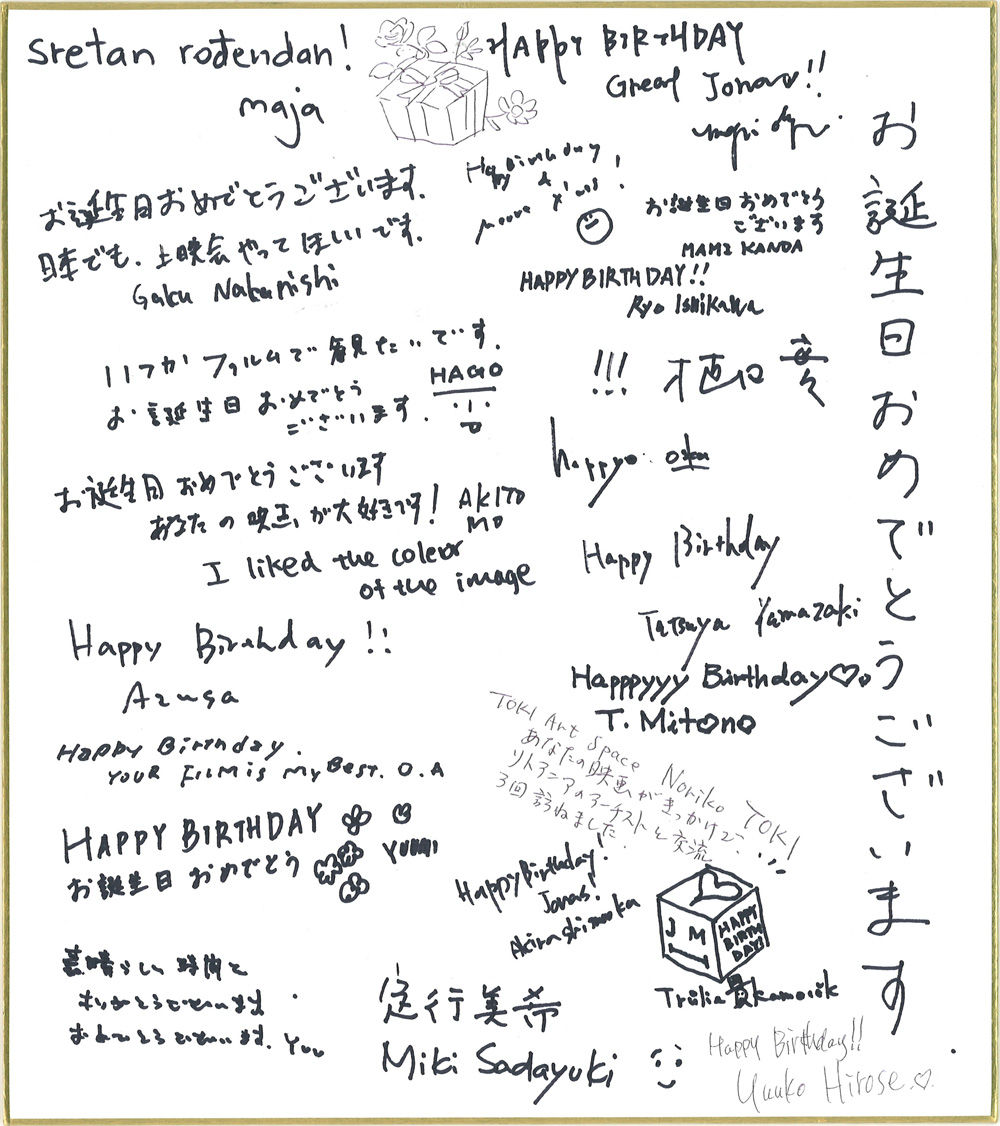 sretan rođendan!
maja
HAPPY BIRTHDAY
Great Jonas!!
お誕生日おめでとうございます
Happy Birthday
&
more years!
お誕生日おめでとうございます.
日本でも、上映会やってほしいです.
Gaku Nakanishi
お誕生日おめでとう
ございます
MAMI KANDA
HAPPY BIRTHDAY!!
Ryo Ishikawa
いつかフィルムで観たいです.
お誕生日おめでとう
ございます.
HAGO
!!!
happy
お誕生日おめでとうございます
あなたの映画が大好きです!
AKITO
MO
I liked the coleur
of the image
Happy Birthday
Tatsuya Yamazaki
Happy Birthday!!
Azusa
Happpyyy Birthday♡.
T. Mitono
Happy Birthday.
YOUR FILM is my Best. O.A
TOKI Art Space Noriko TOKI
あなたの映画がきっかけで、
リトアニアのアーチストと交流
3回訪ねました.
HAPPY BIRTHDAY
お誕生日おめでとう
YUMI
Happy Birthday!
Jonas!
Akira Shimooka
J M
HAPPY
BIRTH
DAY!
素晴らしい時間を
ありがとうございます.
おめでとうございます. You
定行美奈
Miki Sadayuki
Happy Birthday!!
Yuuko Hirose.♡